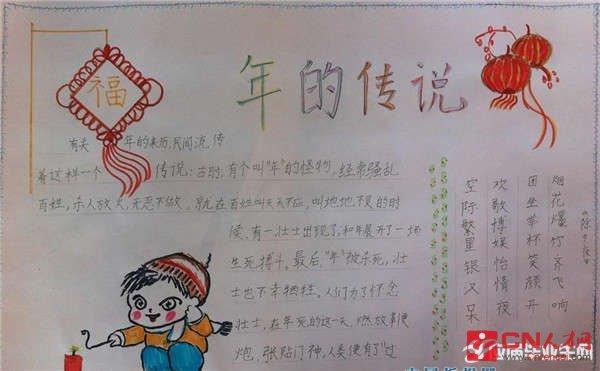 福
年的传说
有关 年的来历,民间流传
着这样一个 传说:古时,有个叫"年"的怪物,经常骚乱
百姓,杀人放火,无恶不做。就在百姓叫天天不应,叫地地不灵的时
候、有一壮士出现了,和年展开了一场
生死搏斗。最后,"年"被杀死,壮
士也不幸牺牲。人们为了怀念
壮士,在年死的这一天,燃放鞭
炮,张贴门神,人类便有了"过
烟花爆灯齐飞响
团坐举杯笑颜开
欢歌博娱怡情夜
空际繁星银汉呆
应届毕业生网